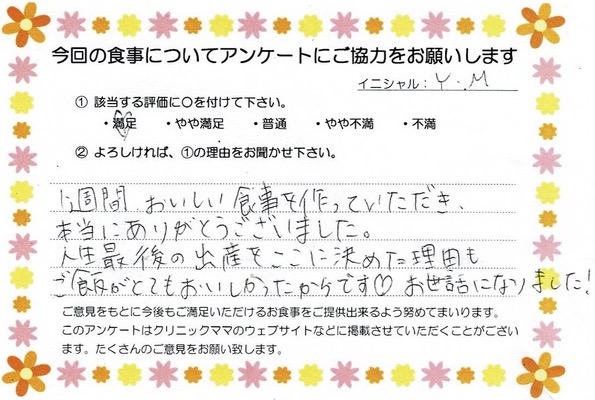 今回の食事についてアンケートにご協力をお願いします
イニシャル: Y.M
① 該当する評価に○を付けて下さい。
・満足 ・やや満足 ・普通 ・やや不満 ・不満
② よろしければ、①の理由をお聞かせ下さい。
1週間 おいしい食事を作っていただき、
本当にありがとうございました。
人生最後の出産をここに決めた理由も
ご飯がとてもおいしかったからです♡ お世話になりました!
ご意見をもとに今後もご満足いただけるお食事をご提供出来るよう努めてまいります。
このアンケートはクリニックママのウェブサイトなどに掲載させていただくことがござい
ます。たくさんのご意見をお願い致します。